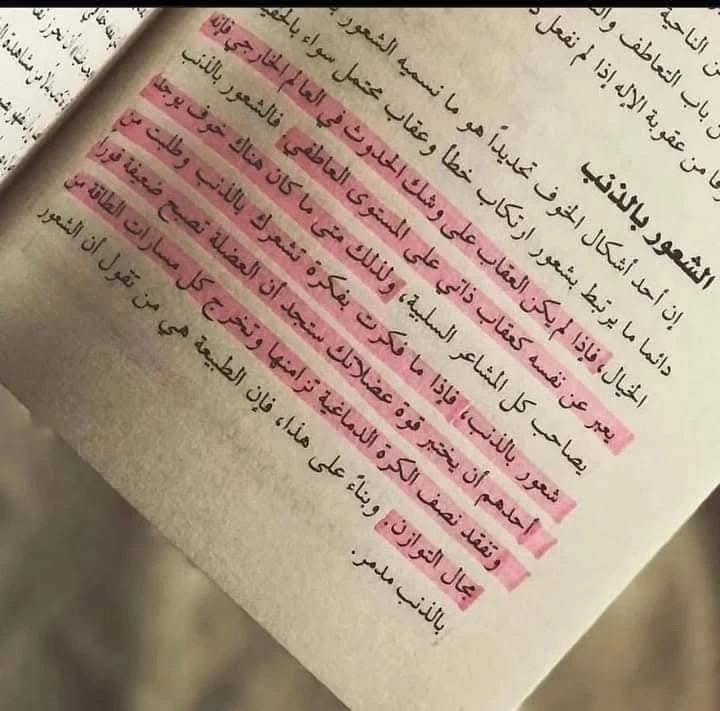 ن الناحية
ن باب التعاطف وال
ا من عقوبة الإله إذا لم نفعل ذ
الشعور بالذنب
إن أحد أشكال الخوف تحديداً هو ما نسميه الشعور ب
دائما ما يرتبط بشعور ارتكاب خطأ وعقاب محتمل سواء بالحقيق
الخيال، فإذا لم يكن العقاب على وشك الحدوث في العالم الخارجي فإنه
يعبر عن نفسه كعقاب ذاتي على المستوى العاطفي فالشعور بالذنب
يصاحب كل المشاعر السلبية، ولذلك متى ما كان هناك خوف يوجد
شعور بالذنب، فإذا ما فكرت بفكرة تشعرك بالذنب وطلبت من
أحدهم أن يختبر قوة عضلاتك ستجد أن العضلة تصبح ضعيفة فوراً
وتفقد نصف الكرة الدماغية تزامنها وتخرج كل مسارات الطاقة من
مجال التوازن. وبناءً على هذا، فإن الطبيعة هي من تقول أن الشعور
بالذنب مدمر.